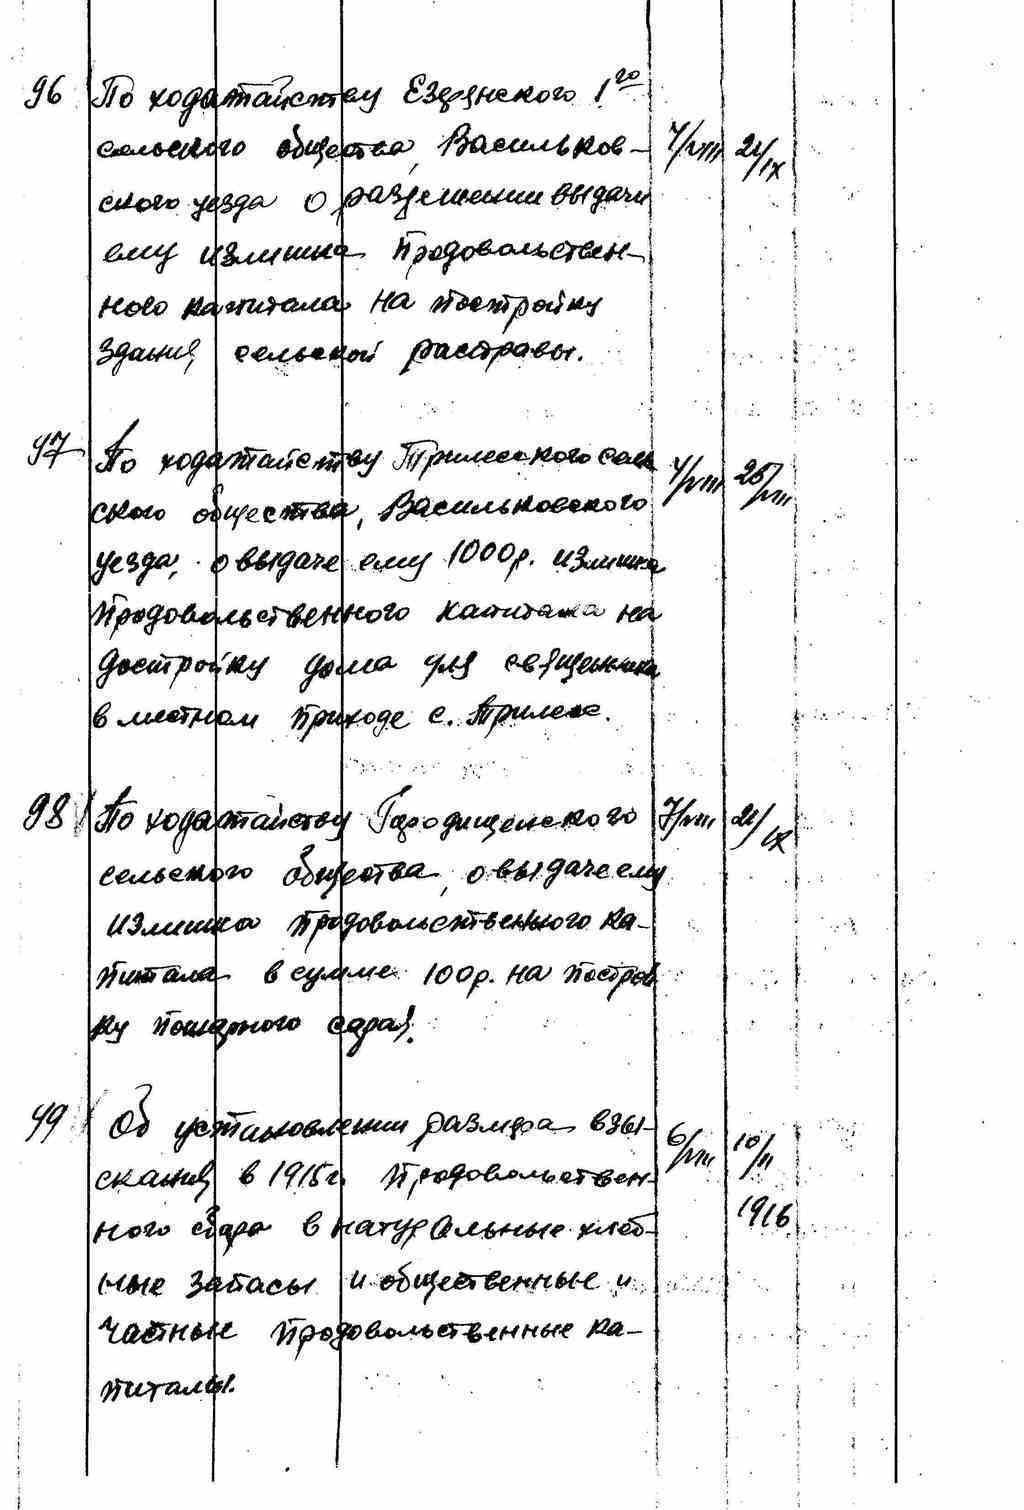 96 По ходатайству Езерянского 1го
сельского общества, Васильков- 7/VIII 21/IX
ского уезда о разрешении выдачи
ему излишка продовольствен-
ного капитала на постройку
здания, сельской расправы.
97 По ходатайству Трилесского сель
ского общества, Васильковского 7/VIII 26/VIII
уезда, о выдаче ему 1000р. излишка
продовольственного капитала на
достройку дома для священника
в местном приходе с. Трилесс.
98 По ходатайству Городищенского 7/VIII 21/IX
сельского общества, о выдаче ему
излишка продовольственного ка-
питала в сумме 100р. на построй
ку пожарного сарая.
99 Об установлении размера взы-
скания в 1915г. продовольствен- 6/VIII 10/II
ного сбора в натуральные хлеб- 1916
ные запасы и общественные и
частные продовольственные ка-
питалы.